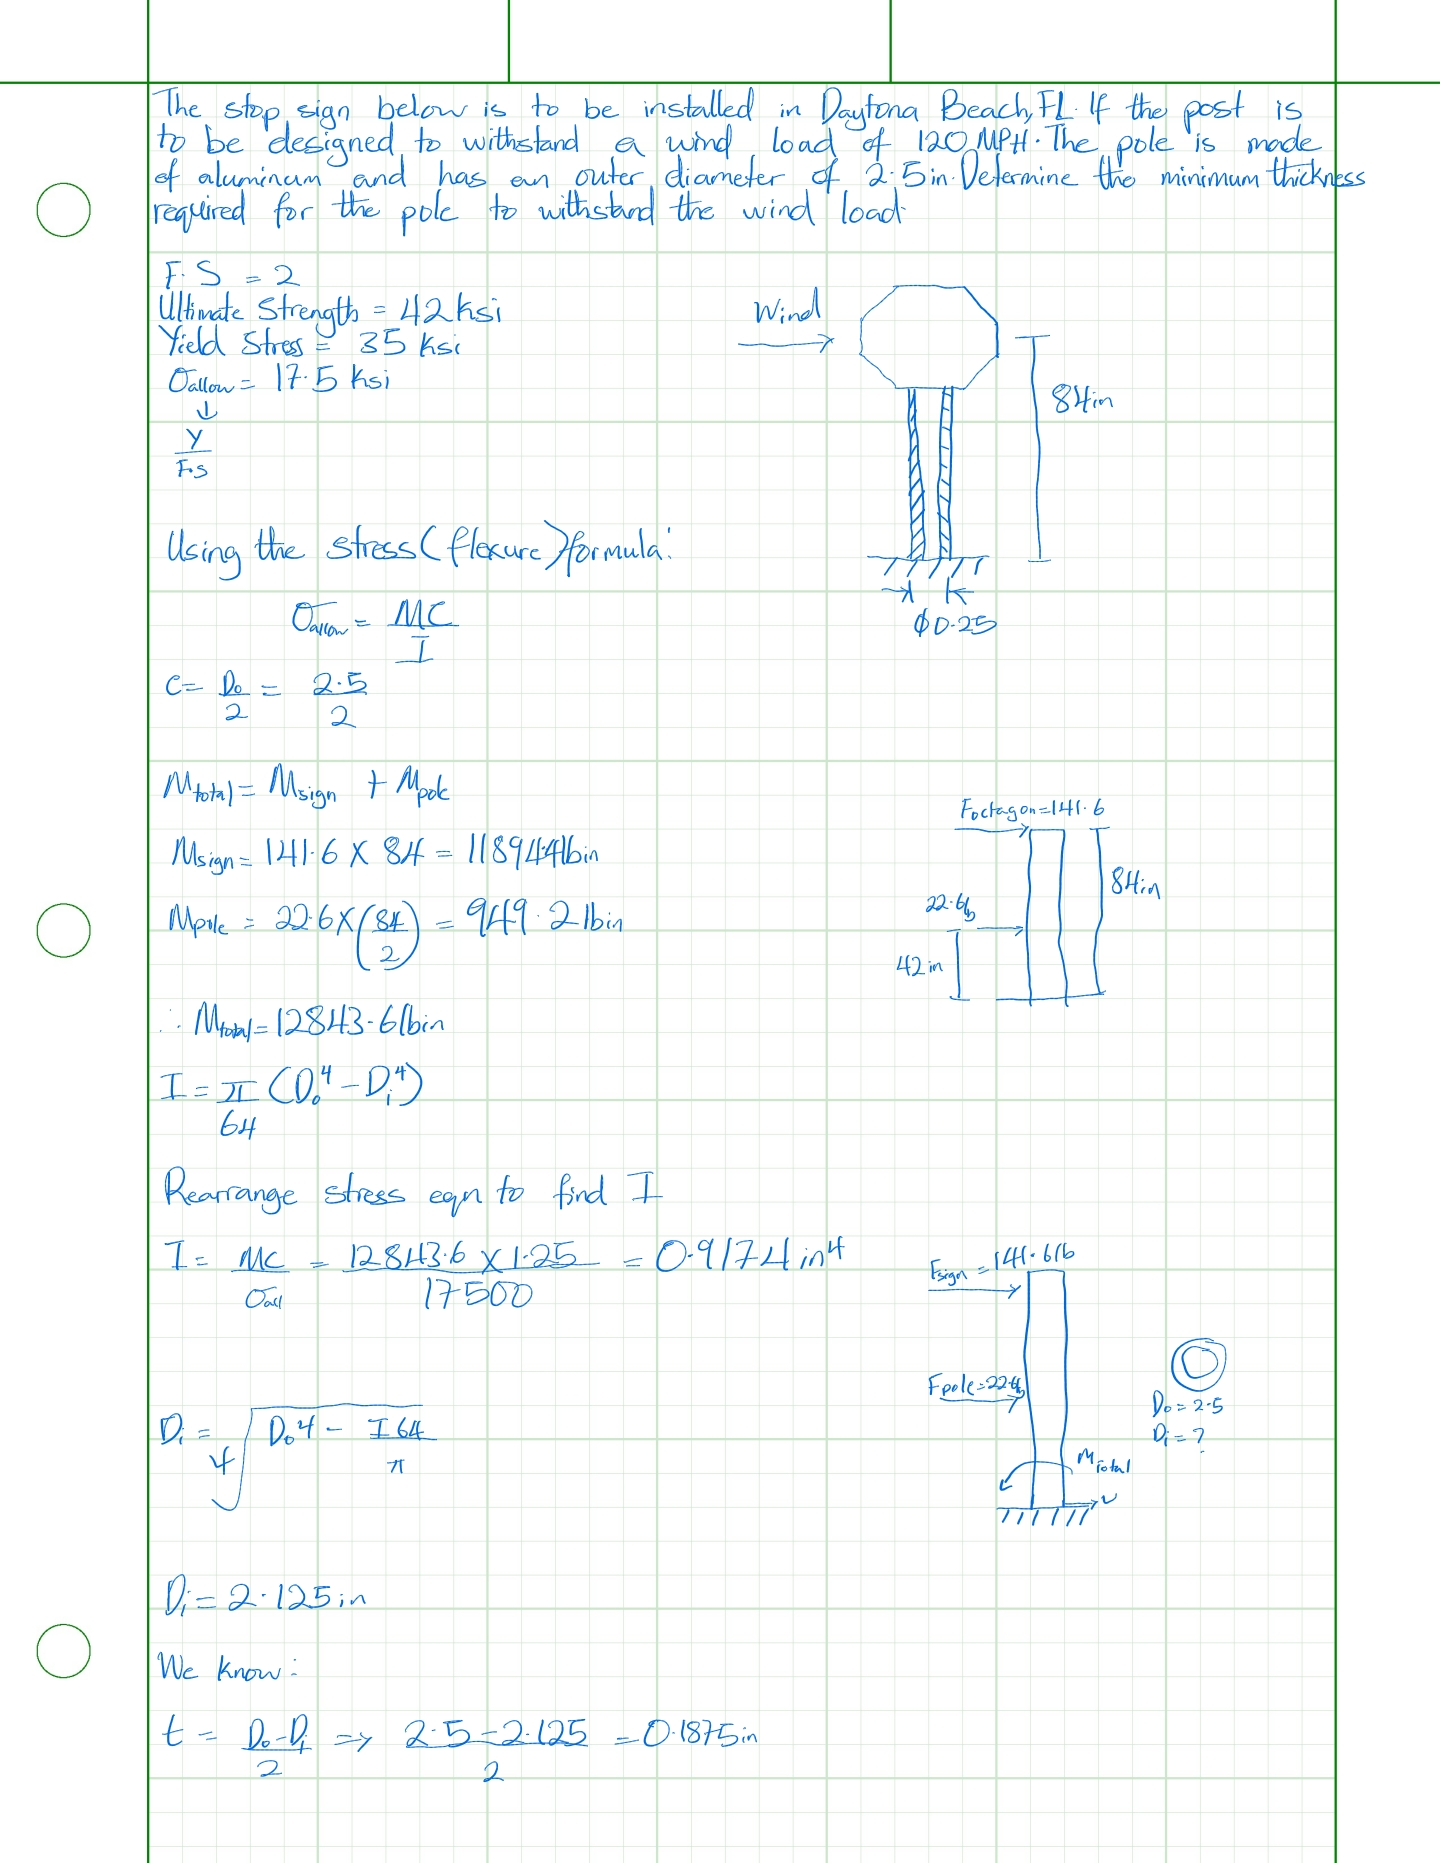 The stop sign below is to be installed in Daytona Beach, FL. If the post is
to be designed to withstand a wind load of 120 MPH. The pole is made
of aluminum and has an outer diameter of 2.5in. Determine the minimum thickness
required for the pole to withstand the wind load.
F.S = 2
Ultimate Strength = 42ksi
Yield Stress = 35 ksi
σallow = 17.5 ksi
↓
Y
F.S
Wind
84in
ϕ0.25
Using the stress (flexure) formula:
σallow = MC
I
C = Do = 2.5
2 2
Mtotal = Msign + Mpole
Msign = 141.6 X 84 = 11894.4lbin
Mpole = 22.6X(84/2) = 949.2 lbin
∴ Mtotal = 12843.6lbin
Foctagon=141.6
84in
22.6lb
42in
I = π (Do⁴ - Di⁴)
64
Rearrange stress eqn to find I
I = MC = 12843.6 X 1.25 = 0.9174 in⁴
σall 17500
Fsign = 141.6lb
Fpole=22.6lb
Do = 2.5
Di = ?
MTotal
V
Di = 4√ Do4 - I 64
π
Di = 2.125in
We know:
t = Do-Di => 2.5-2.125 = 0.1875in
2 2